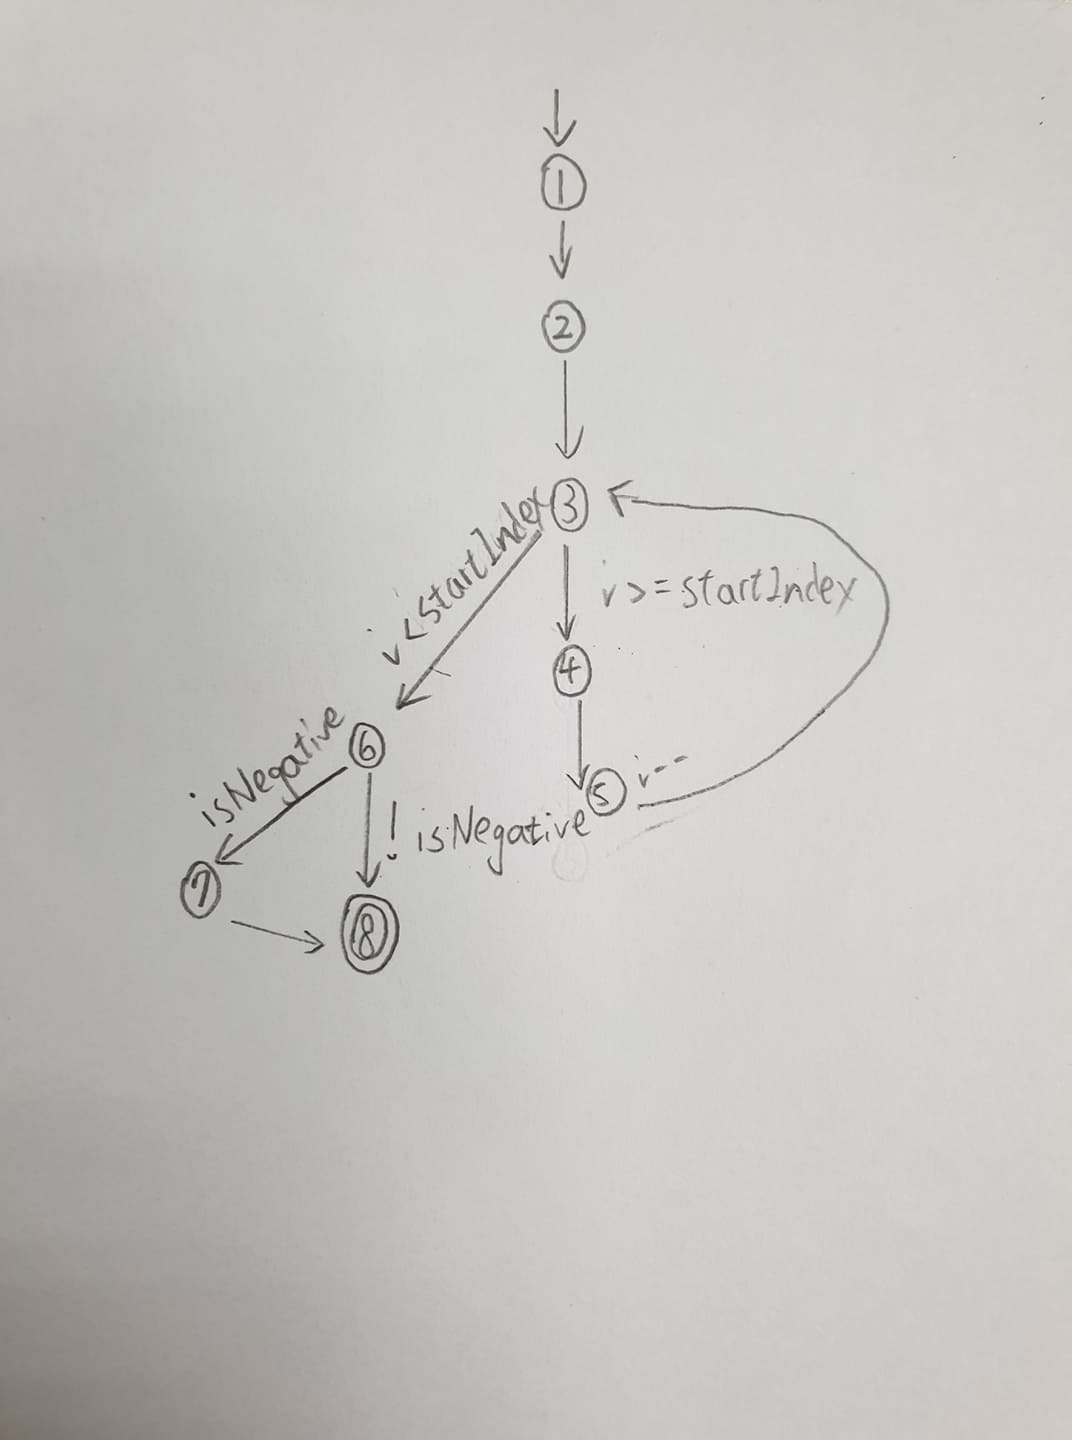 1
2
3
i < startIndex
i >= startIndex
4
6
isNegative
5 i--
! isNegative
7
8